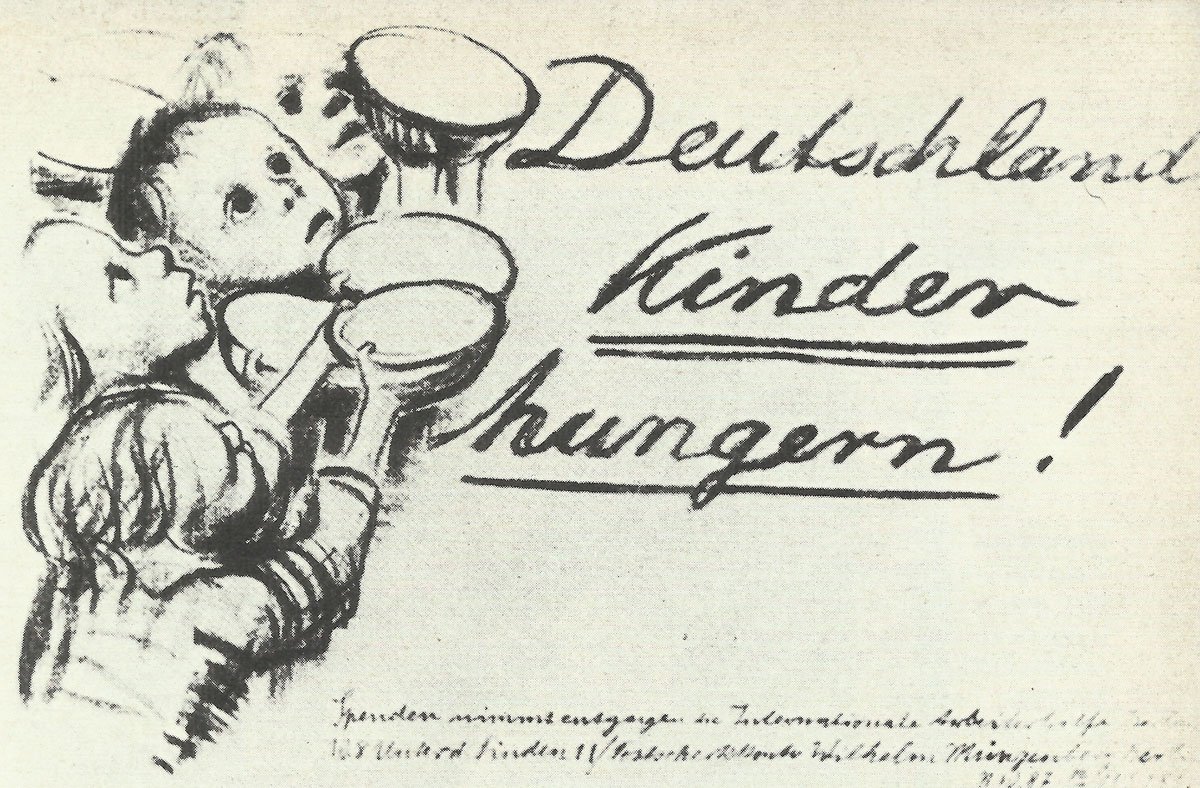 Deutschland
Kinder
hungern!
Spenden nimmt entgegen die Internationale Arbeiterhilfe
W.8 Unter d. Linden 11/Postscheckkonto Wilhelm Münzenberg